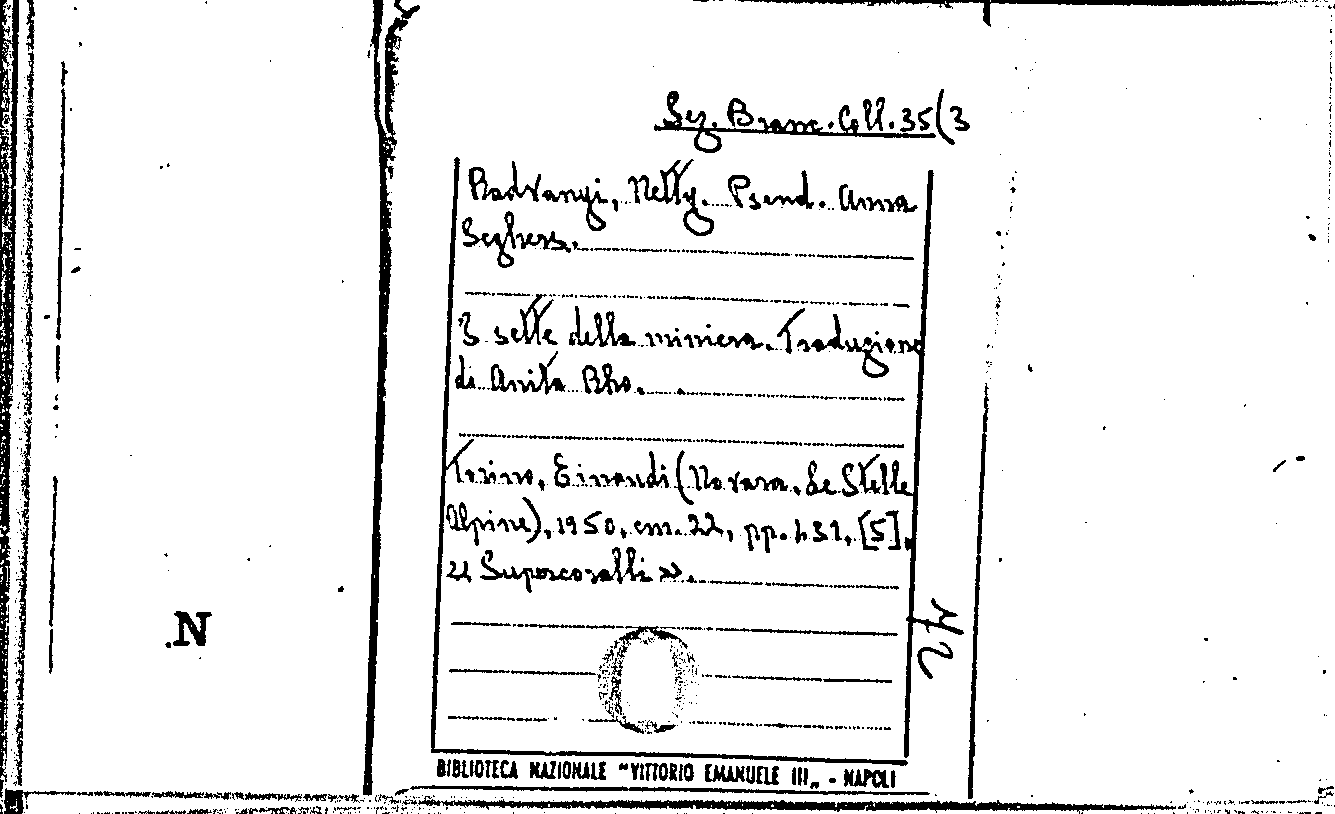 Sez. Branc. Coll. 35(3
Radvanyi, Netty. Pseud. Anna
Seghers.
I sette della miniera. Traduzione
di Anita Rho.
Torino, Einaudi (Novara, Le Stelle
Alpine), 1950, cm. 22, pp. 431, [5].
« Supercoralli ».
42
N
BIBLIOTECA NAZIONALE "VITTORIO EMANUELE III„ - NAPOLI